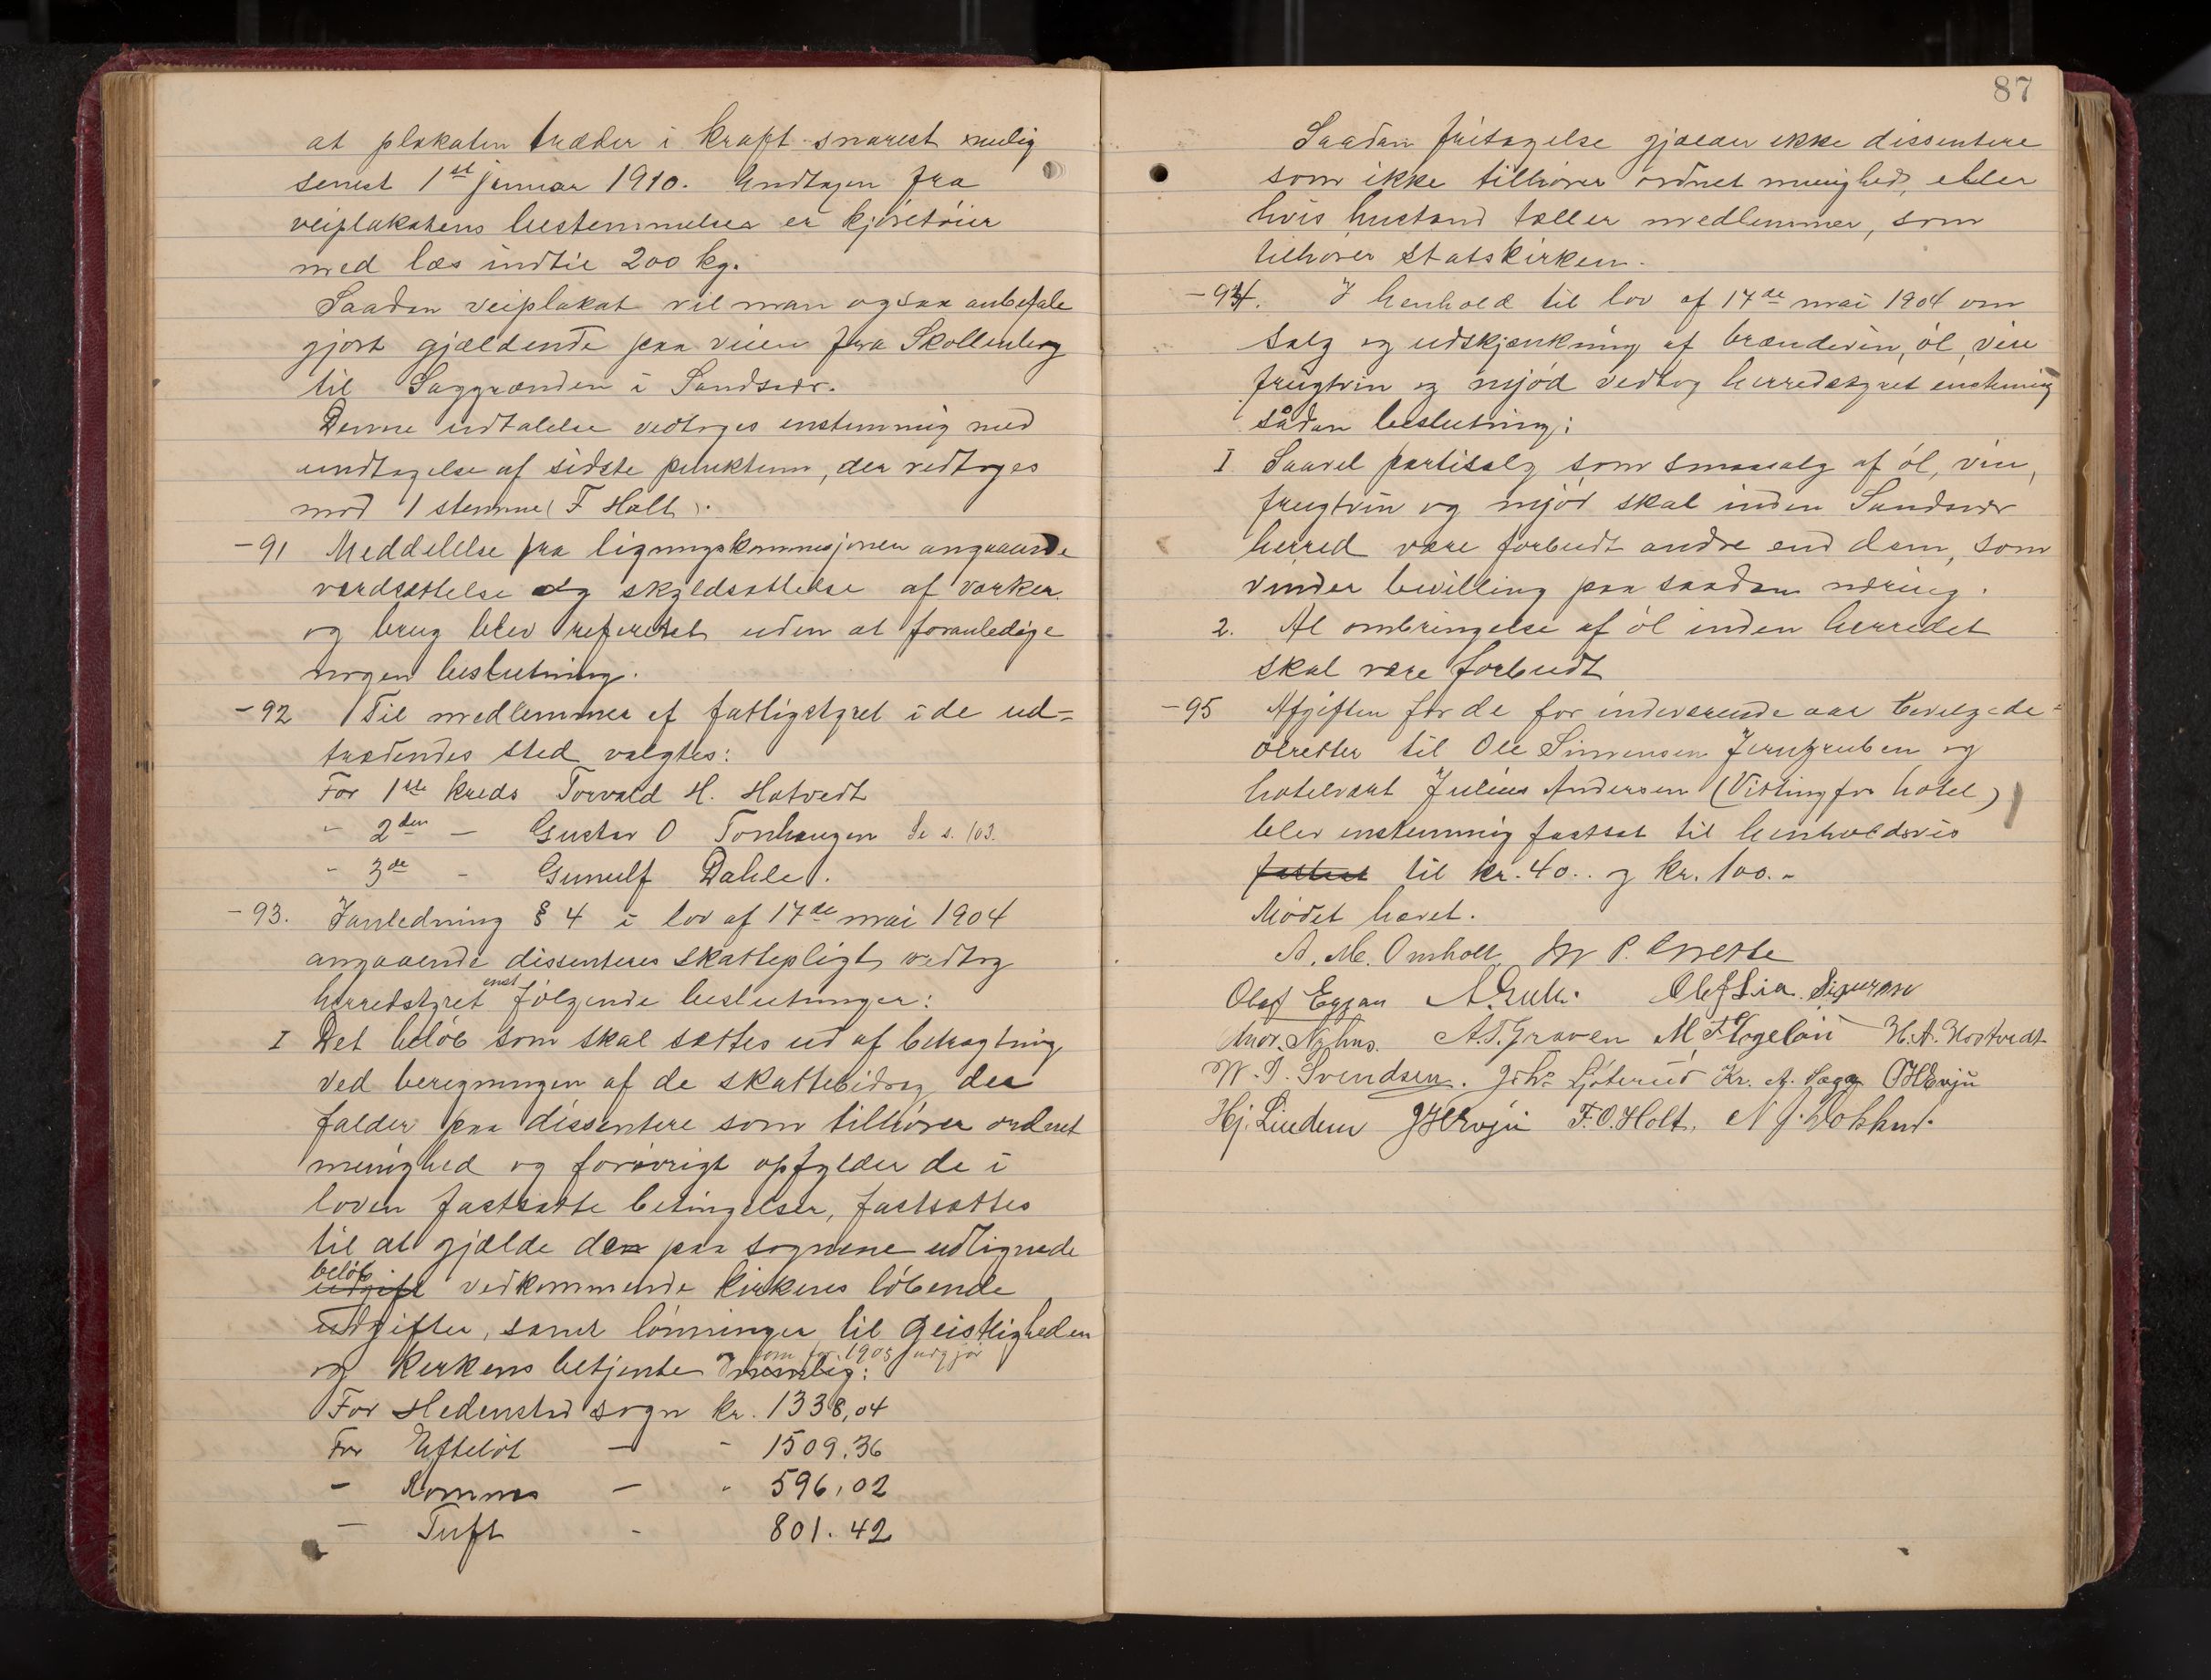 at plakaten træder i kraft snarest mulig
senest 1st januar 1910. Undtagen fra
veiplakatens bestemmelser er kjøretøier
med læs indtil 200 kg.
Saadan veiplakat vil man ogsaa anbefale
gjort gjældende paa veien fra Skollenborg
til Saggrænden i Sandsvær.
Denne udtalelse vedtoges enstemmig med
undtagelse af sidste punktum, der vedtoges
mod 1 stemme (F Holt).
-91 Meddelelse fra ligningskommisjonen angaaende
værdsættelse og skyldsættelse af værker
og brug blev refereret uden at foranledige
nogen beslutning.
-92 Til medlemmer af fattigstyret i de ud-
trædendes sted valgtes:
For 1ste kreds Torvald H. Hotvedt
" 2den — Gustav O Tonhaugen Se s. 103.
- 3de - Gunulf Dahle.
-93. I anledning § 4 i lov af 17de mai 1904
angaaende dissenteres skattepligt vedtog
herredstyret enst følgende beslutninger:
I Det beløb som skal sættes ud af betragtning
ved beregningen af de skattebidrag der
falder paa dissentere som tilhører ordnet
menighed og forøvrigt opfylder de i
loven fastsatte betingelser, fastsættes
til at gjælde den paa sognene udlignede
beløb
udgift vedkommende kirkenes løbende
udgifter, samt lønninger til Geistligheden
som for 1908 udgjør
og kirkens betjente nemlig:
For Hedenstad sogn kr. 1338,04
For Efteløt — - 1509.36
- Komnes — " 596,02
— Tuft - 801.42
87
Saadan fritagelse gjælder ikke dissentere
som ikke tilhører ordnet menighed, eller
hvis hustand tæller medlemmer, som
tilhører statskirken.
-94. I henhold til lov af 17de mai 1904 om
salg og udskjænkning af brændevin, øl, vin
frugtvin og mjød vedtog herredstyret enstemmig
sådan beslutning:
I Saavel partisalg som smaasalg af øl, vin,
frugtvin og mjød skal inden Sandsvær
herred være forbudt andre end dem, som
vinder bevilling paa saadan næring.
2. Al ombringelse af øl inden herredet
skal være forbudt
-95 Afgiften for de for indeværende aar bevilgede
ølretter til Ole Simensen Jerngruben og
hotelvært Julius Andersen (Vittingfos hotel)
blev enstemmig fastsat til henholdsvis
fastsat til kr. 40.. og kr. 100.-
Mødet hævet.
A. M. Omholt P.
Olaf Eggan Lia
Nyhus. A.T. Graven M, Flogeløii H.A. Hostvedt
W. J. Svendsen. Johs Ljøterud Kr. A. Sagg OHEvju
Hj. Linden JHEvju F.O. Holt. N J.